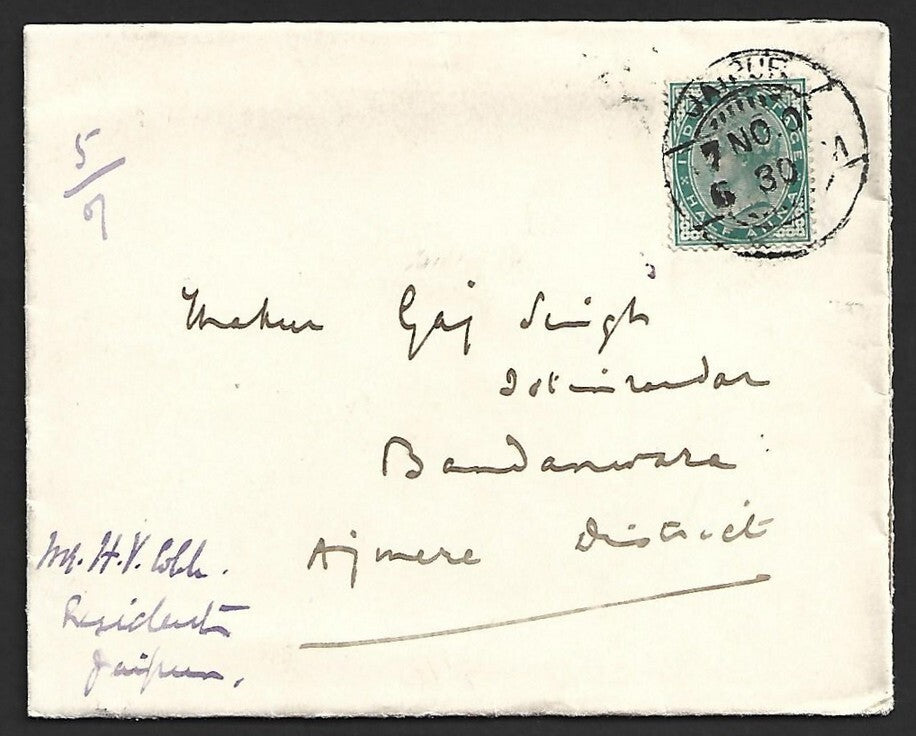 JAIPUR
7 NO. 01
6 30
HALF ANNA
5/9
Thakur Gaj Singh
Istimrardar
Bandanwara
Ajmere District
Mr. H. V. Cobb.
Resident
Jaipur.